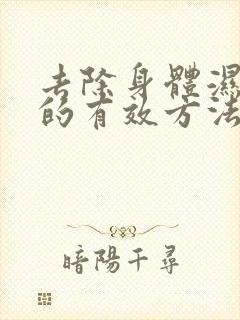 去除身體濕
的有效方法
暗陽千尋